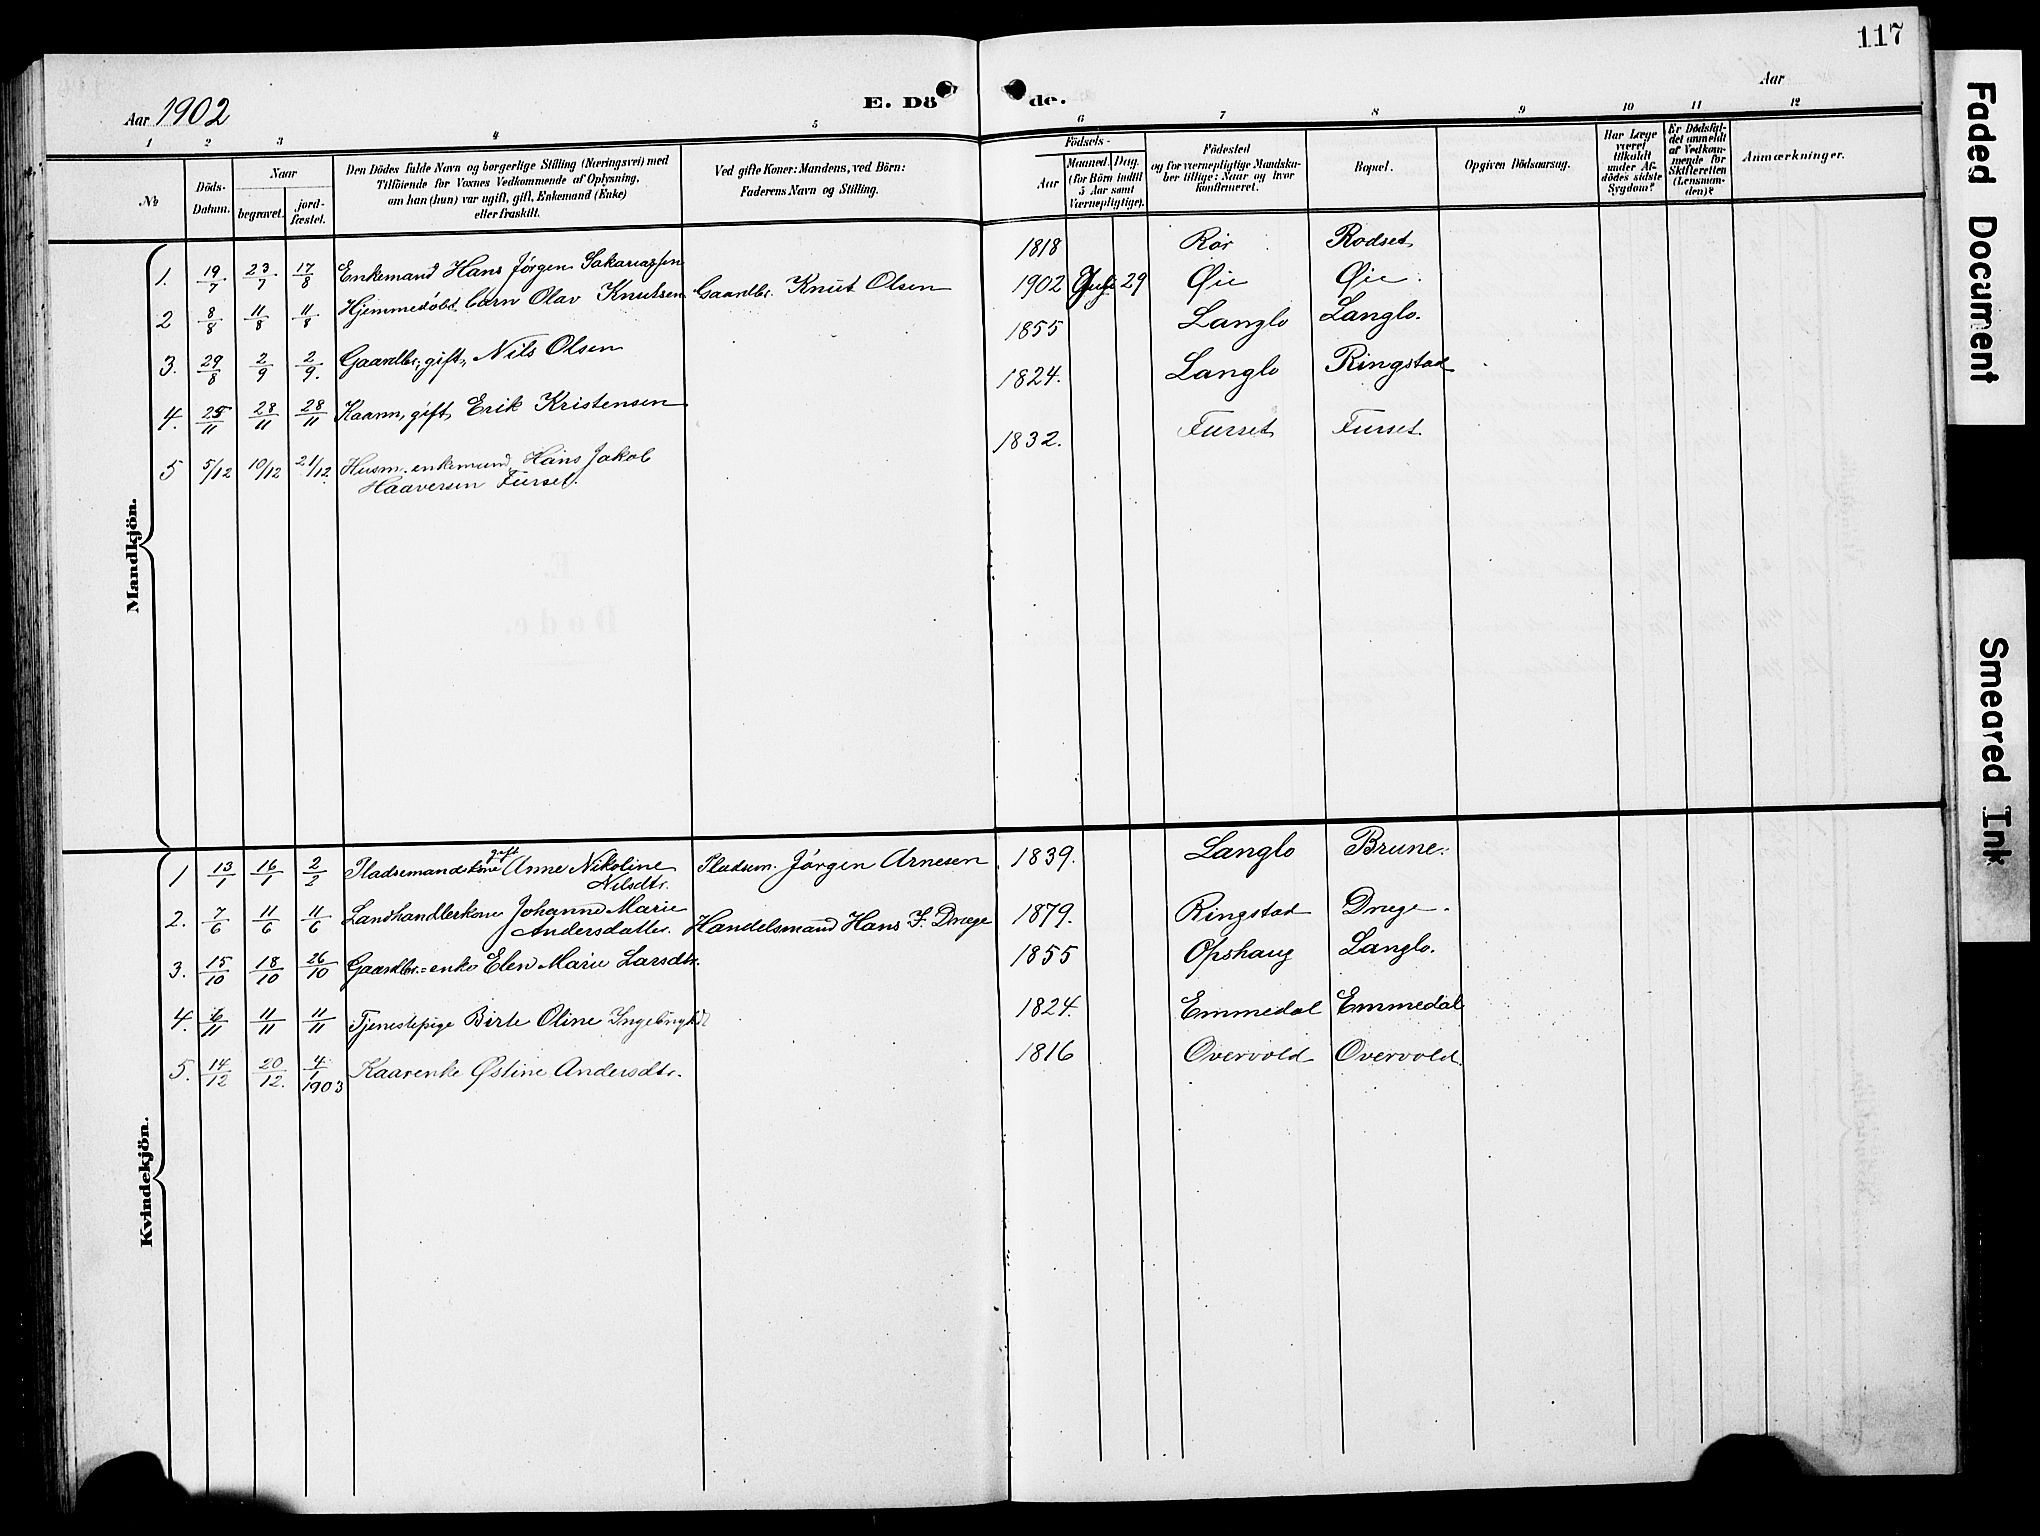 117
Aar 1902
E. Dö de.
Aar
1 2 3 4 5 6 7 8 9 10 11 12
No
Döds-
Datum.
Naar
begravet.
jord-
fæstet.
Den Dödes fulde Navn og borgerlige Stilling (Næringsvei) med
Tilföiende for Voxnes Vedkommende af Oplysning,
om han (hun) var ugift, gift, Enkemand (Enke)
eller fraskilt.
Ved gifte Koner: Mandens, ved Börn:
Faderens Navn og Stilling.
Födsels-
Aar
Maaned. Dag.
(for Börn indtil
5 Aar samt
Værnepligtige).
Födested
og for værnepligtige Mandska-
ber tillige: Naar og hvor
konfirmeret.
Bopæl.
Opgiven Dödsaarsag.
Har Læge
været
tilkaldt
under Af-
dödes sidste
Sygdom?
Er Dödsfal-
det anmeldt
af Vedkom-
mende for
Skifteretten
(Lensman-
den)?
Anmærkninger.
Mandkjön.
1. 19/7 23/7 17/8 Enkemand Hans Jørgen Sakariassen 1818 Rør Rodset
2 8/8 11/8 11/8 Hjemmedøbt barn Olav Knutsen Gaardbr. Knut Olsen 1902 Juli 29 Øie Øie
3. 29/8 2/9 2/9. Gaardbr., gift, Nils Olsen 1855 Langlo Langlo.
4. 25/11 28/11 28/11 Kaarm, gift, Erik Kristensen 1824. Langlo Ringstad
5 5/12 10/12 21/12 Husm. enkemand Hans Jakob
Haaversen Furset. 1832. Furset Furset
Kvindekjön.
gift
1 13/1 16/1 2/2 Pladsemandskone Anne Nikoline
Nilsdtr. Pladsm. Jørgen Arnesen 1839. Langlo Brune.
2. 7/6 11/6 11/6 Landhandlerkone Johanne Marie
Andersdatter. Handelsmand Hans J. Drege 1879. Ringstad Drege.
3. 15/10 18/10 26/10 Gaardbr.-enke Elen Marie Larsdtr. 1855 Opshaug Langlo.
4. 6/11 11/11 11/11 Tjenestepige Birte Oline 1824. Emmedal Emmedal
5. 14/12 20/12. 4/1 1903 Kaarenke Østine Andersdtr. 1816 Overvold Overvold.
Faded Document
Smeared Ink